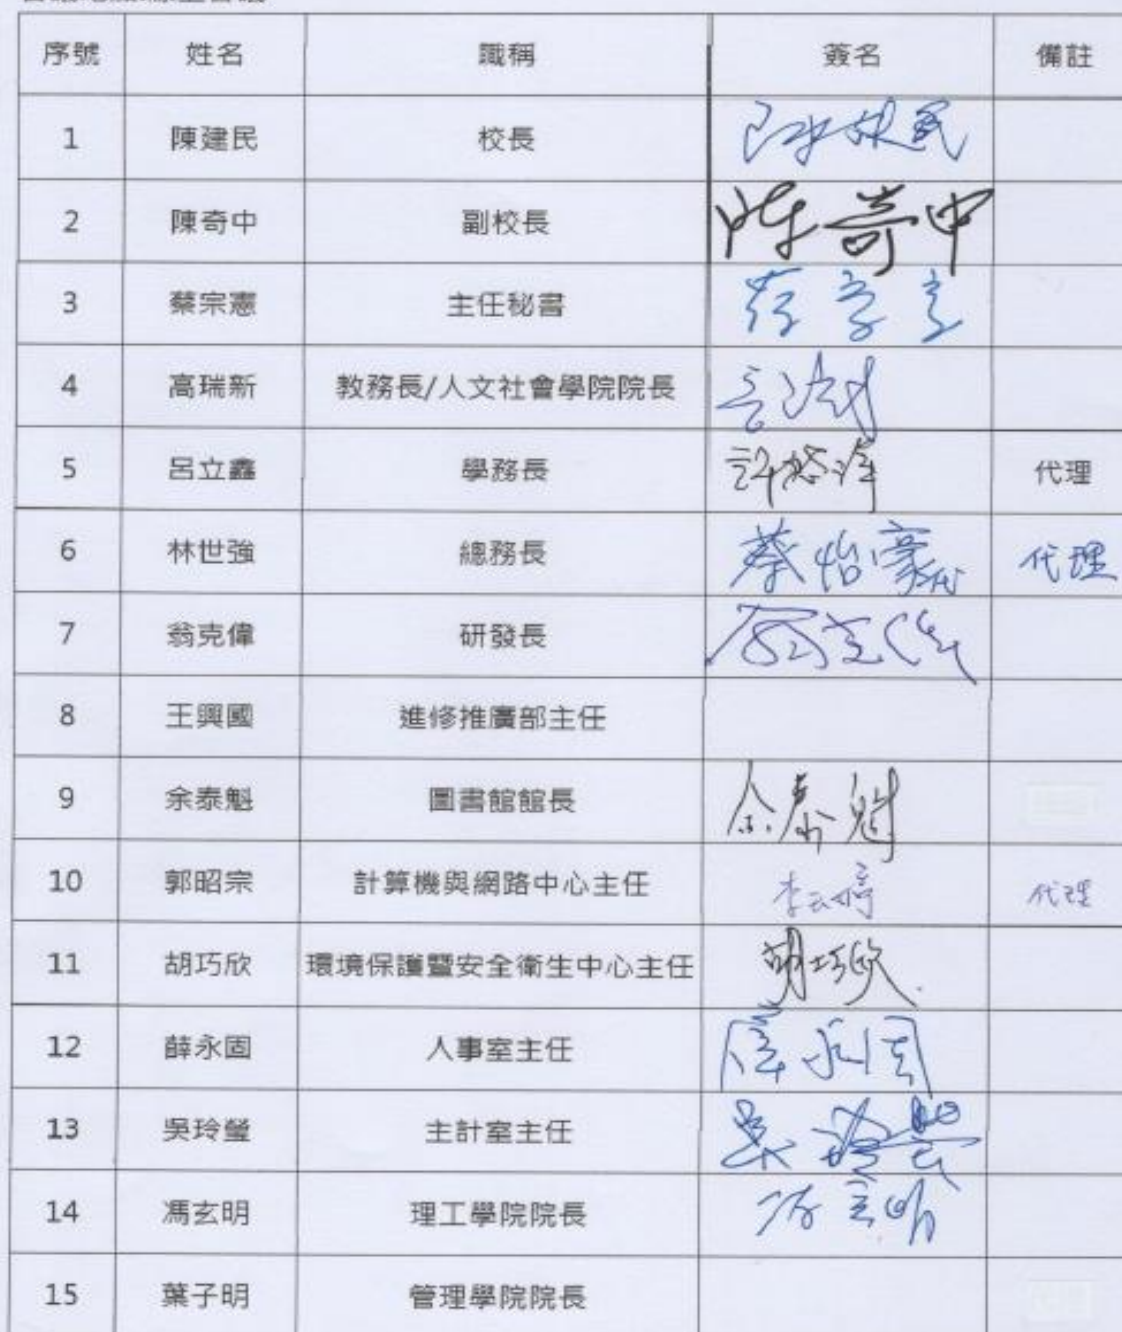 序號 姓名 職稱 簽名 備註
1 陳建民 校長 陳建民
2 陳奇中 副校長 陳奇中
3 蔡宗憲 主任秘書
4 高瑞新 教務長/人文社會學院院長
5 呂立鑫 學務長 代理
6 林世強 總務長 蔡怡豪代 代理
7 翁克偉 研發長 翁克偉
8 王興國 進修推廣部主任
9 余泰魁 圖書館館長 余泰魁
10 郭昭宗 計算機與網路中心主任 李云婷 代理
11 胡巧欣 環境保護暨安全衛生中心主任 胡巧欣
12 薛永固 人事室主任 薛永固
13 吳玲瑩 主計室主任 吳玲瑩
14 馮玄明 理工學院院長 馮玄明
15 葉子明 管理學院院長